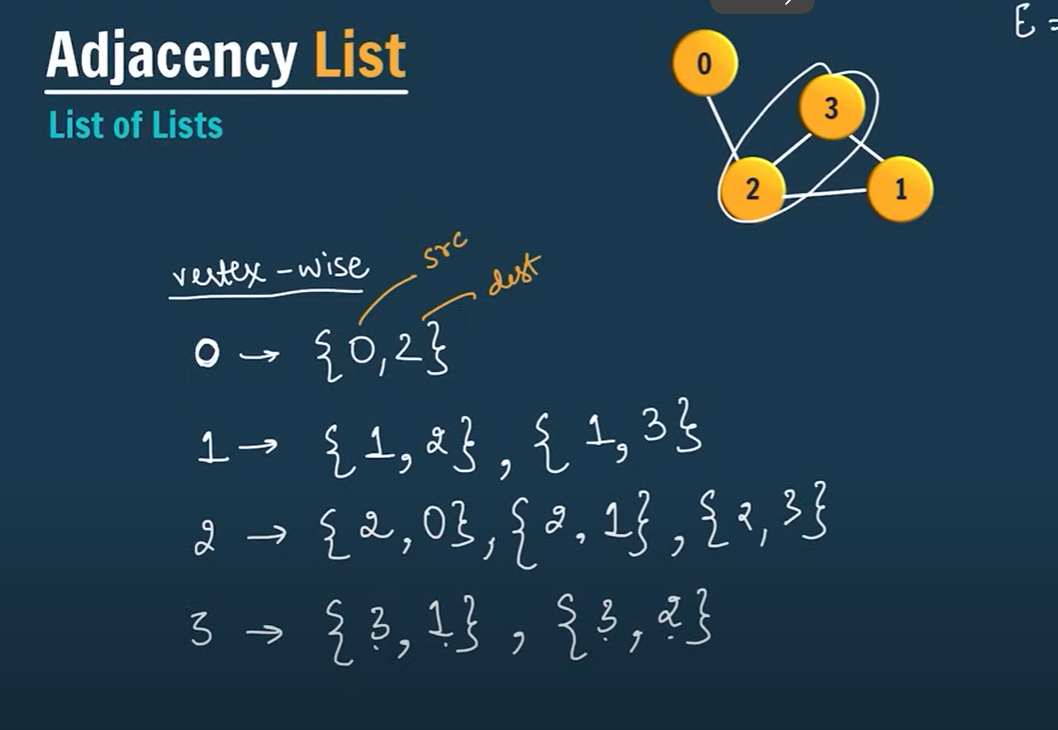 E =
Adjacency List
List of Lists
0
3
2
1
vertex-wise
src
dest
0 → {0,2}
1 → {1,2}, {1,3}
2 → {2,0}, {2,1}, {2,3}
3 → {3,1}, {3,2}